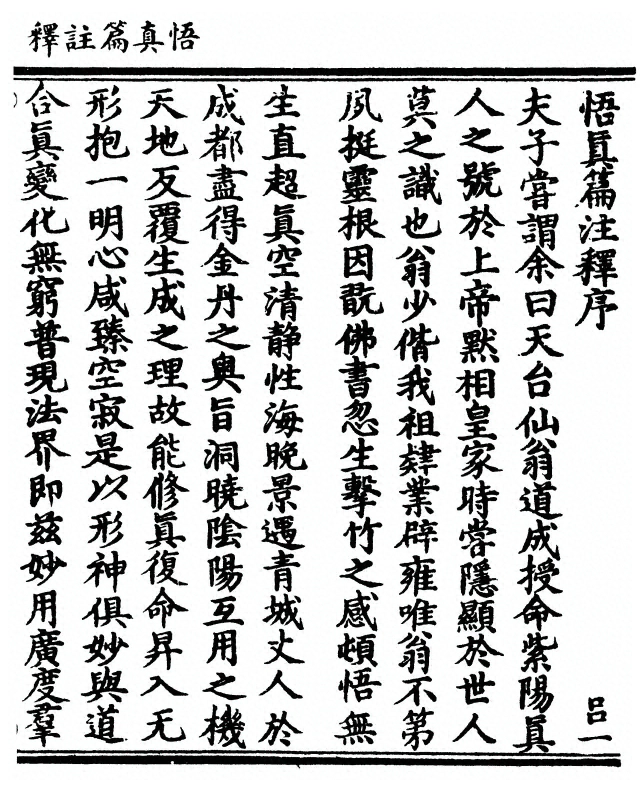 悟真篇註釋
悟真篇注釋序
吕一
夫子嘗謂余曰天台仙翁道成授命紫陽真
人之號於上帝默相皇家時嘗隱顯於世人
莫之識也翁少偕我祖肄業辟雍唯翁不第
夙挺靈根因翫佛書忽生擊竹之感頓悟無
生直超真空清靜性海晚景遇青城丈人於
成都盡得金丹之奥旨洞曉陰陽互用之機
天地反覆生成之理故能修真復命昇入无
形抱一明心咸臻空寂是以形神俱妙與道
合真變化無窮普現法界即兹妙用廣度羣